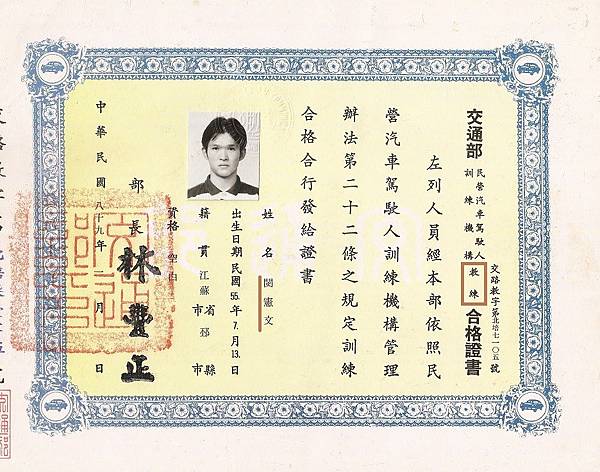 交通部
民營汽車駕駛人
訓練機構
教練
合格證書
交路教字第北培七一〇五號
左列人員經本部依照民
營汽車駕駛人訓練機構管理
辦法第二十二條之規定訓練
合格合行發給證書
姓名 閔憲文
出生日期民國55年7月13日
籍貫江蘇省邳縣
市市
資格空白
部長林豐正
中華民國八十九年二月 日